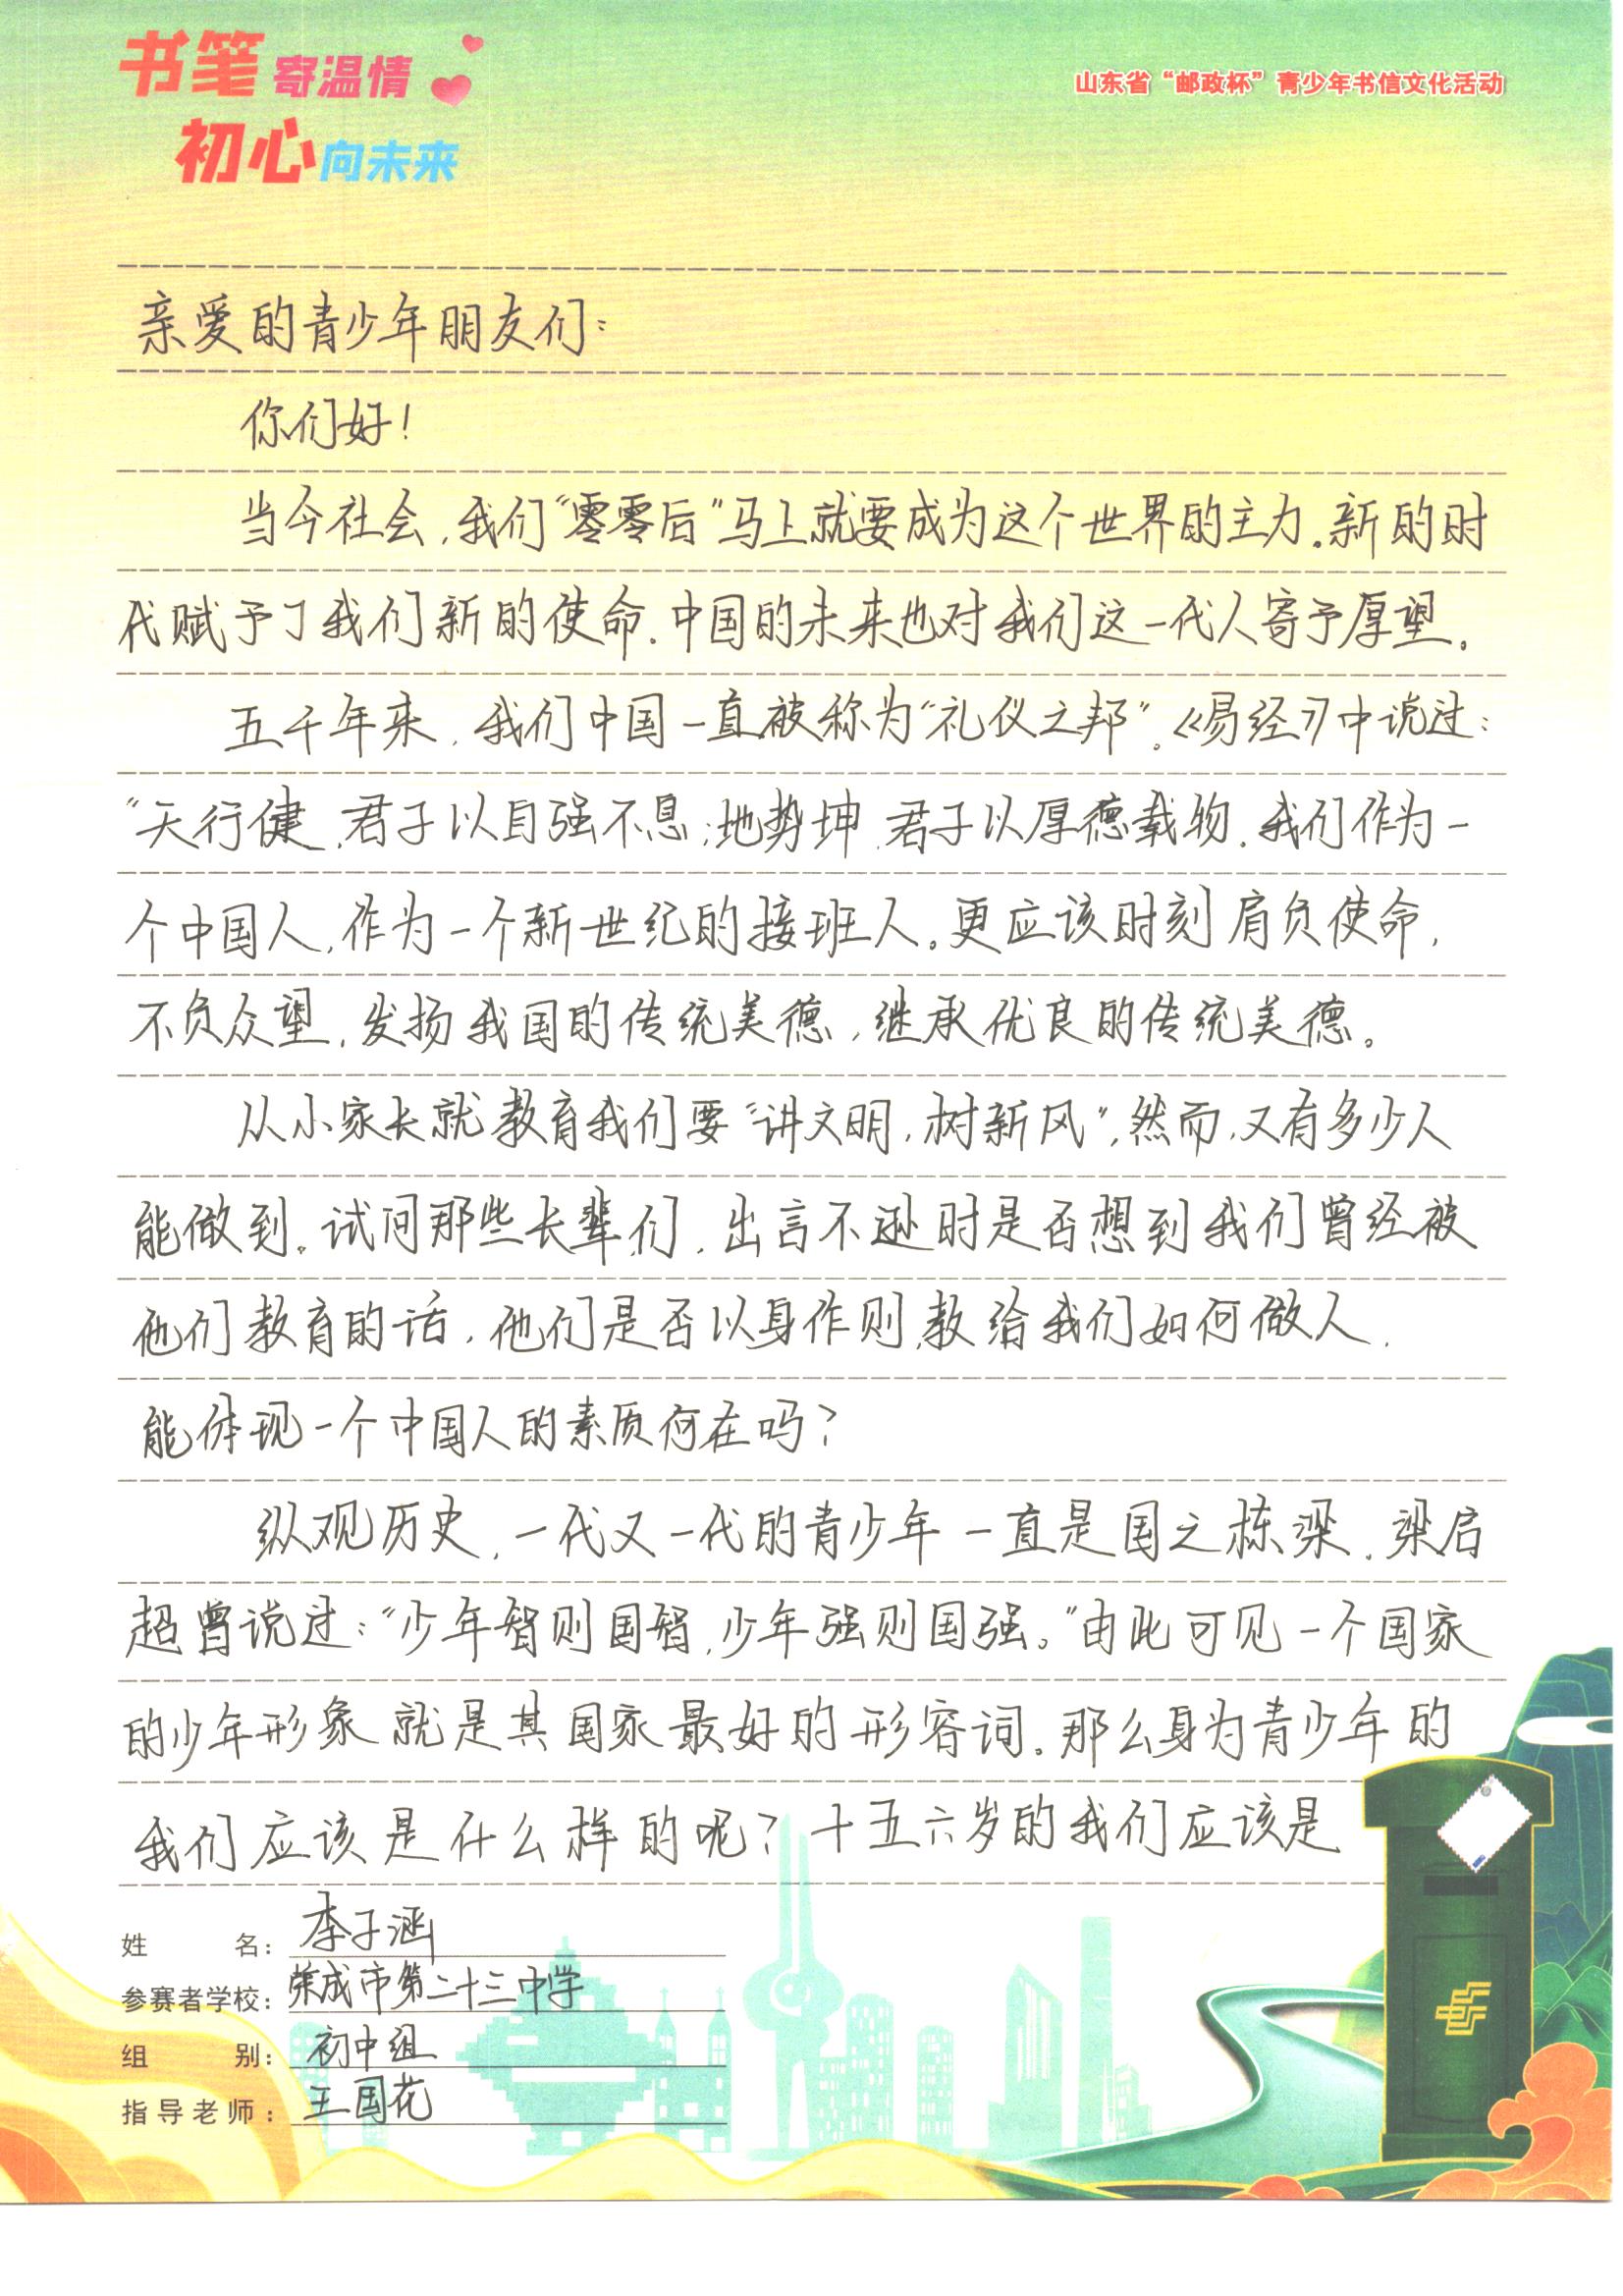 书笔寄温情
初心向未来
山东省“邮政杯”青少年书信文化活动
亲爱的青少年朋友们：
你们好！
当今社会，我们“零零后”马上就要成为这个世界的主力。新的时
代赋予了我们新的使命.中国的未来也对我们这一代人寄予厚望。
五千年来，我们中国一直被称为“礼仪之邦”。《易经》中说过：
“天行健，君子以自强不息；地势坤，君子以厚德载物．我们作为一
个中国人，作为一个新世纪的接班人。更应该时刻肩负使命，
不负众望，发扬我国的传统美德，继承优良的传统美德。
从小家长就教育我们要“讲文明，树新风”，然而，又有多少人
能做到。试问那些长辈们，出言不逊时是否想到我们曾经被
他们教育的话，他们是否以身作则，教给我们如何做人，
能体现一个中国人的素质何在吗？
纵观历史，一代又一代的青少年一直是国之栋梁．梁启
超曾说过：“少年智则国智，少年强则国强。”由此可见一个国家
的少年形象就是其国家最好的形容词。那么身为青少年的
我们应该是什么样的呢？十五六岁的我们应该是
姓名：李子涵
参赛者学校：荣成市第二十三中学
组别：初中组
指导老师：王国花